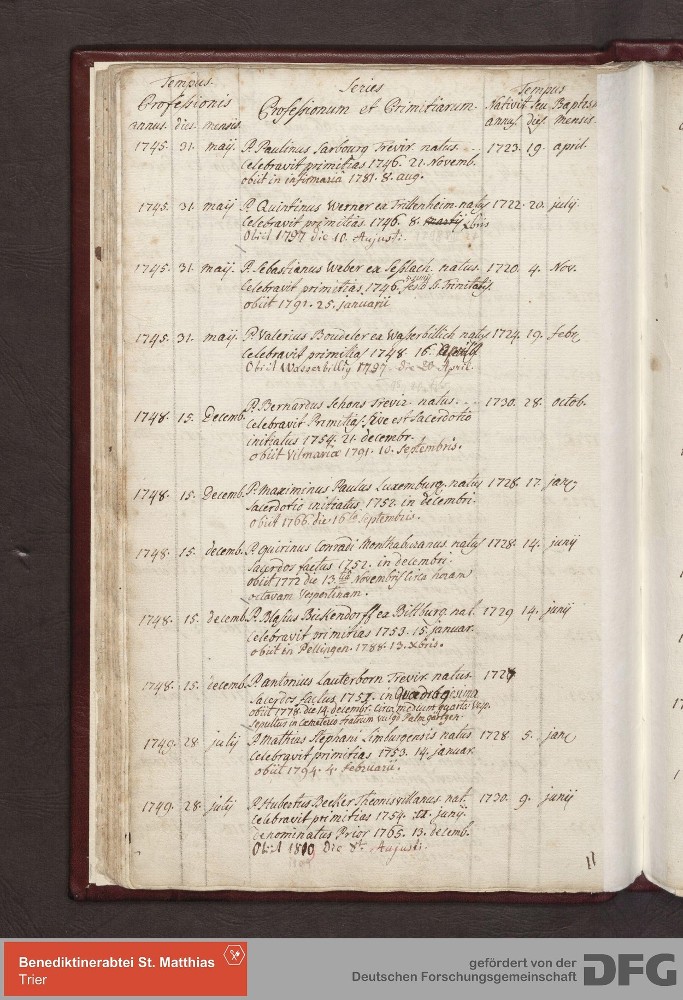 Tempus Series Tempus
Professionis Professionum et Primitiarum Nativit. seu Baptis.
annus. dies. mensis. annus dies mensis.
1745. 31. maij. P. Paulinus Sarbourg Trevir. natus .. 1723. 19. april.
Celebravit primitias 1746. 21. Novemb.
obiit in infirmaria 1781. 8. aug.
1745. 31. maij P. Quintinus Werner ex Trittenheim. natus 1722. 20. julij
Celebravit primitias 1746. 8. martij xbris
Obiit 1797 die 10. Augusti.
1745. 31. maij. P. Sebastianus Weber ex Seßlach. natus 1720. 4. Nov.
Celebravit primitias 1746. festo SS. Trinitatis.
obiit 1791. 25. januarii
1745. 31. maij. P. Valerius Boudeler ex Waßerbillich natus 1724. 19. febr.
Celebravit primitias 1748. 16. aprilis
Obiit Wasserbillig 1797 die 20. April.
1748. 15. Decemb. P. Bernardus Schons Trevir. natus. .. 1730. 28. octob.
Celebravit Primitias, sive est Sacerdotio
initiatus 1754. 21. decembr.
obiit Vilmariæ 1791. 10. Septembris.
1748. 15. Decemb. P. Maximinus Paulus Luxemburg. natus 1728. 17. jan.
Sacerdotio initiatus 1752. in decembri.
obiit 1766. die 16ta Septembris.
1748. 15. decemb. P. Quirinus Conradi Monthaburanus natus 1728. 14. junij
Sacerdos factus 1752. in decembri.
obiit 1772 die 13.tia Novembris circa horam
octavam Vespertinam.
1748. 15. decemb. P. Blasius Bickendorff ex Bittburg. nat. 1729 14. junij
Celebravit primitias 1753. 15. januar.
obiit in Pellingen. 1788. 13. xbris.
1748. 15. decemb. P. Antonius Lauterborn Trevir. natus. 1727
Sacerdos factus 1751. in Quadragesima
obiit 1778. die 14. decembr. circa medium quarta Vesp.
Sepultus in Cæmeterio fratrum vulgo Palmgartgen.
1749. 28 julij P. Mathias Stephani Limburgensis natus 1728 5. jan.
Celebravit primitias 1753. 14. januar.
obiit 1794. 4. Februarii.
1749. 28. julij P. Hubertus Becker Theonisvillanus. nat. 1730. 9. junij
Celebravit primitias 1754. junij.
denominatus Prior 1765. 13. decemb.
Obiit 1809 Die 8t. Augusti.
11
Benediktinerabtei St. Matthias
Trier
gefördert von der
Deutschen Forschungsgemeinschaft
DFG